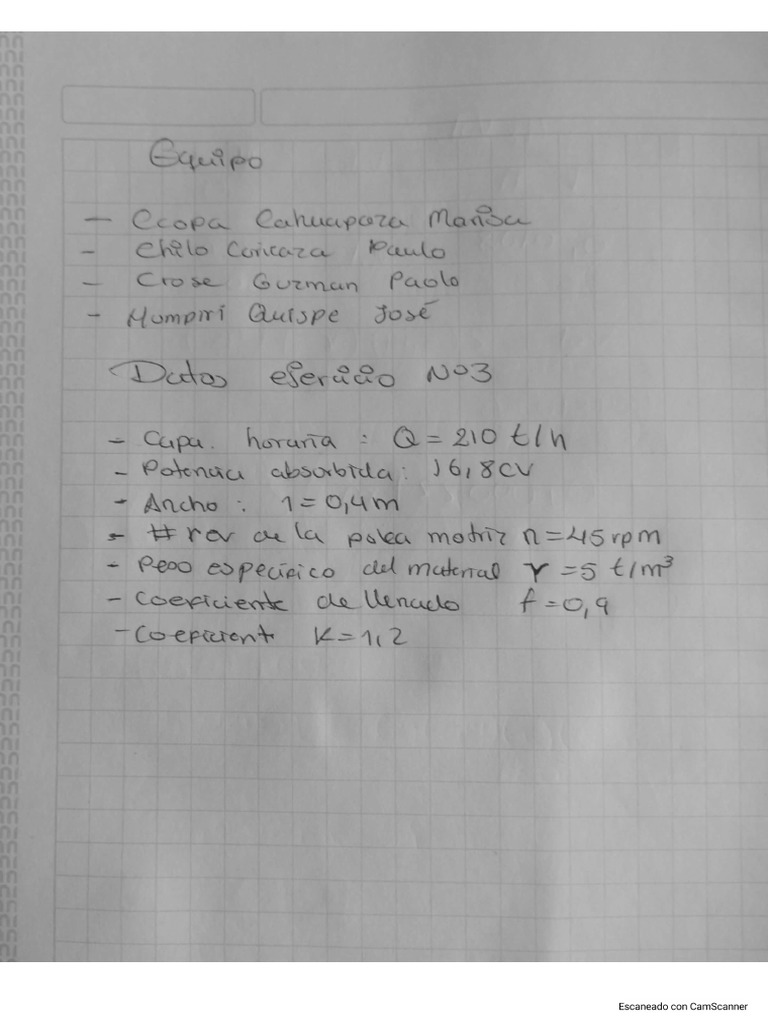 Equipo
- Ccopa Cahuapaza Marisa
- Chilo Caricaza Paulo
- Crose Guzman Paolo
- Mompiri Quispe José
Datos ejercicio N°3
- Capa. horaria : Q = 210 t/h
- Potencia absorbida: 16,8CV
- Ancho : 1 = 0,4m
- # rev de la polea motriz n = 45 rpm
- Peso especifico del material γ = 5 t/m³
- Coeficiente de llenado f = 0,9
- Coeficient K = 1,2
Escaneado con CamScanner